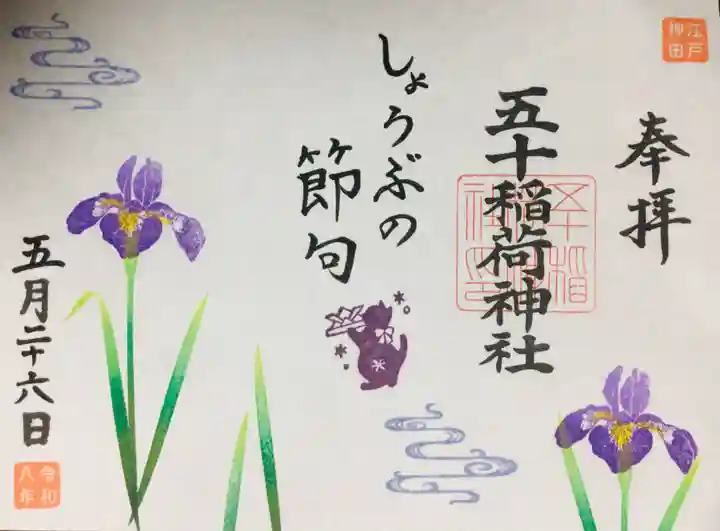 江戸
神田
奉拝
五十稲荷神社
しょうぶの
節句
五月二十六日
令和
八年